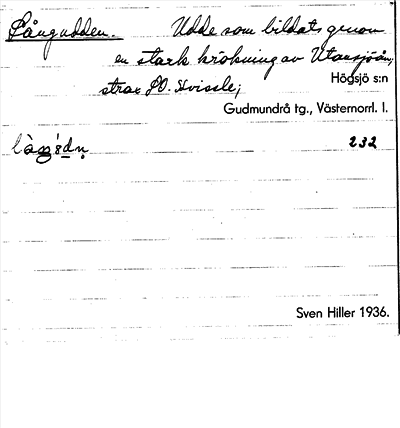 Långudden. Udde som bildats genom
en stark krökning av Utansjöån,
strax SO. Hvissle;
Högsjö s:n
Gudmundrå tg., Västernorrl. l.
232
Sven Hiller 1936.